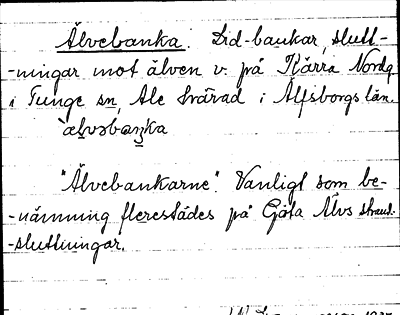 Älvebanka. Lid-bankar, slutt-
-ningar mot älven v. på Kärra Nordg.
i Tunge sn, Ale härad i Älfsborgs län.
`älvəbaŋka
"Älvebankarne". Vanligt som be-
-nämning flerestädes på Göta Älvs strand-
-sluttningar.